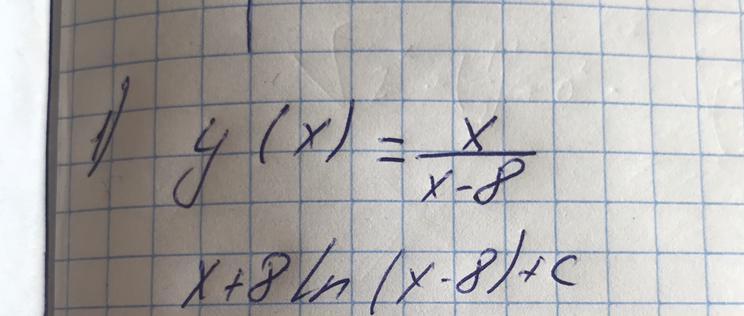 1) y(x) = x/(x-8)
x+8ln(x-8)+c